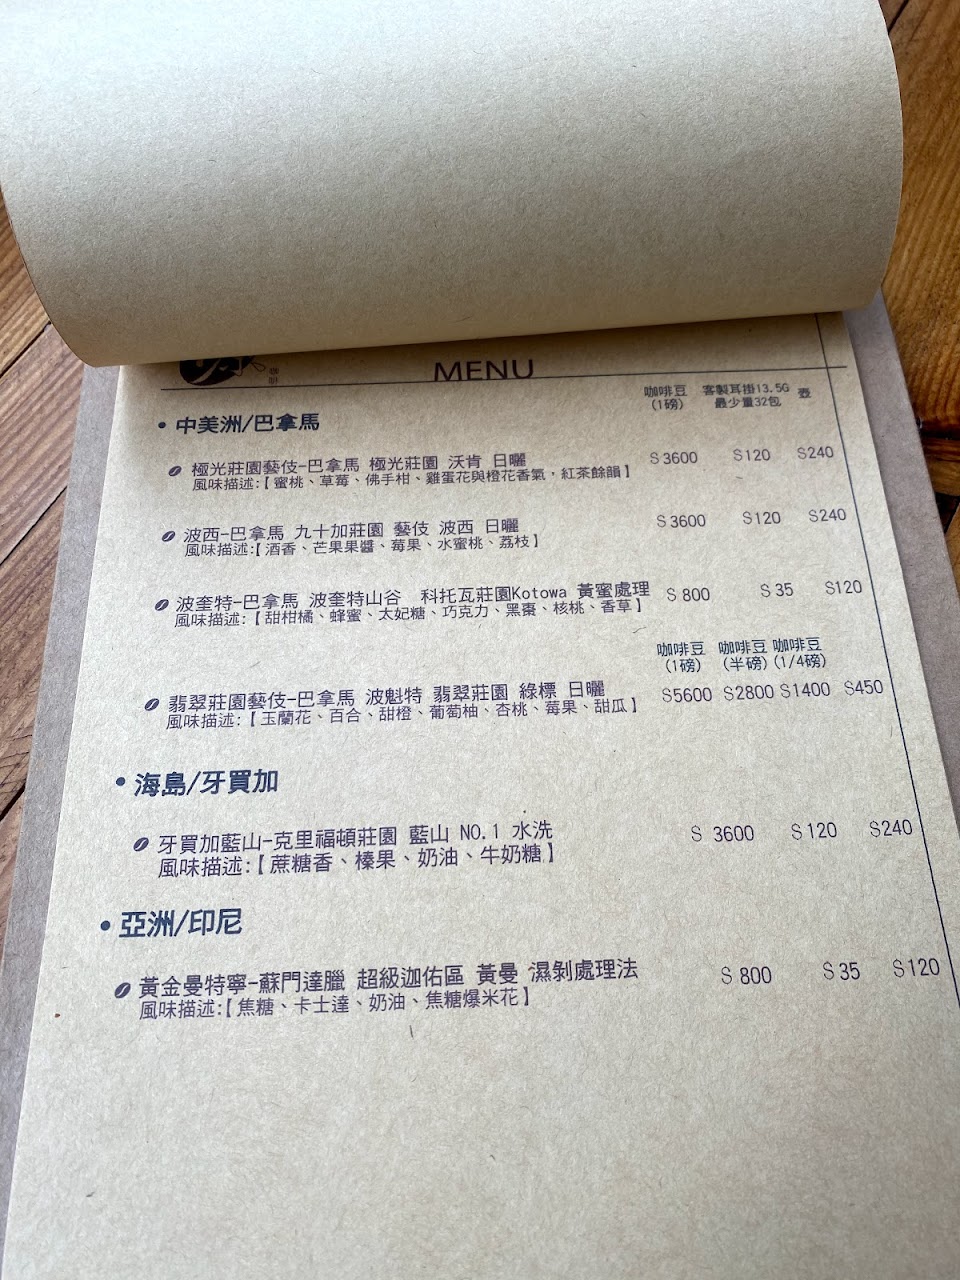 MENU
咖啡豆 客製耳掛13.5G 壺
(1磅) 最少量32包
• 中美洲/巴拿馬
極光莊園藝伎-巴拿馬 極光莊園 沃肯 日曬 $3600 $120 $240
風味描述:【蜜桃、草莓、佛手柑、雞蛋花與橙花香氣，紅茶餘韻】
波西-巴拿馬 九十加莊園 藝伎 波西 日曬 $3600 $120 $240
風味描述:【酒香、芒果果醬、莓果、水蜜桃、荔枝】
波奎特-巴拿馬 波奎特山谷 科托瓦莊園Kotowa 黃蜜處理 $800 $35 $120
風味描述:【甜柑橘、蜂蜜、太妃糖、巧克力、黑棗、核桃、香草】
咖啡豆 咖啡豆 咖啡豆
(1磅) (半磅) (1/4磅)
翡翠莊園藝伎-巴拿馬 波魁特 翡翠莊園 綠標 日曬 $5600 $2800 $1400 $450
風味描述:【玉蘭花、百合、甜橙、葡萄柚、杏桃、莓果、甜瓜】
• 海島/牙買加
牙買加藍山-克里福頓莊園 藍山 NO.1 水洗 $3600 $120 $240
風味描述:【蔗糖香、榛果、奶油、牛奶糖】
• 亞洲/印尼
黃金曼特寧-蘇門達臘 超級迦佑區 黃曼 濕剝處理法 $800 $35 $120
風味描述:【焦糖、卡士達、奶油、焦糖爆米花】